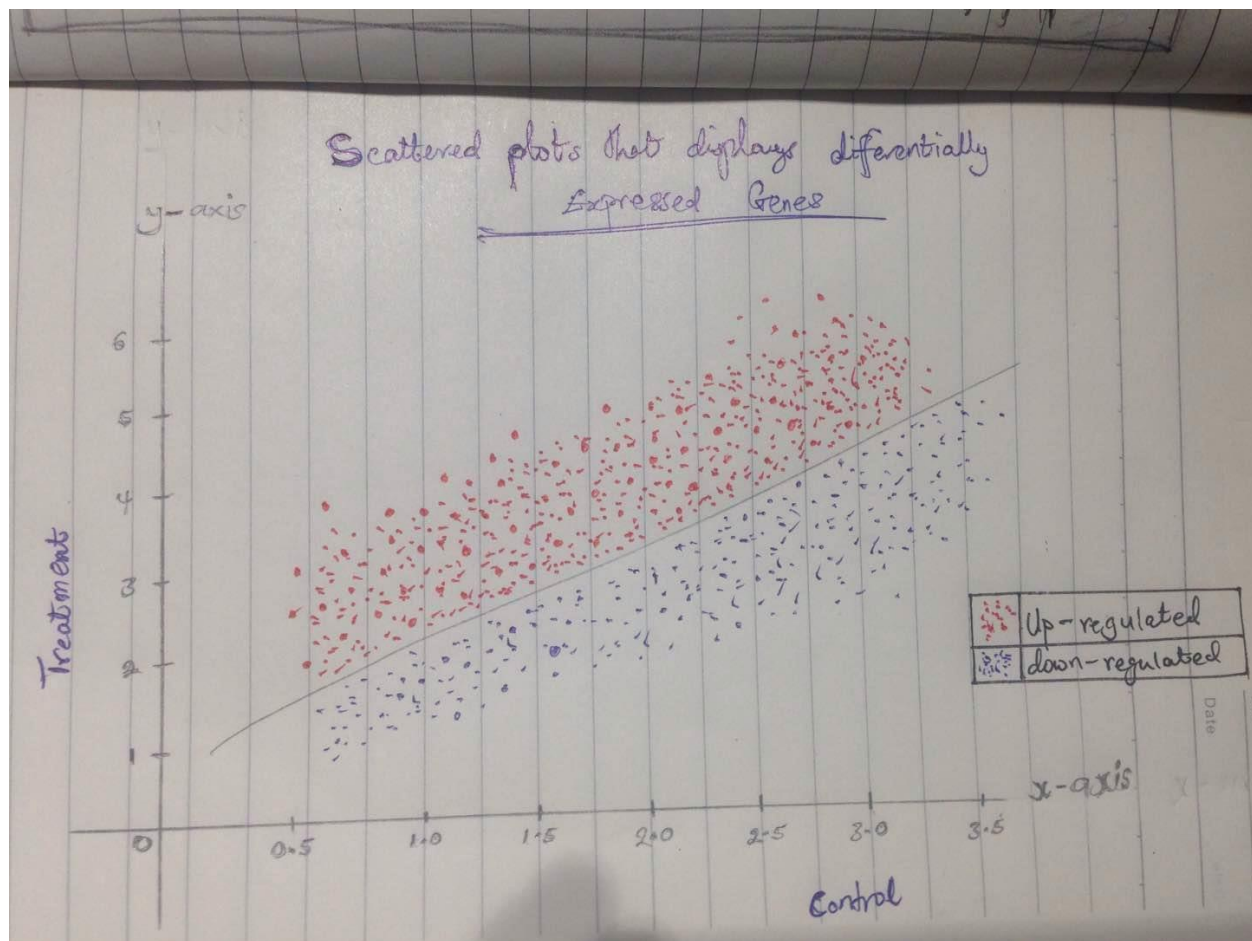 Scattered plots that displays diferentially
Expressed Genes
y-axis
6
5
4
3
2
1
0
0.5
1.0
1.5
2.0
2.5
3.0
3.5
x-axis
Treatment
Control
Up-regulated
down-regulated
Date